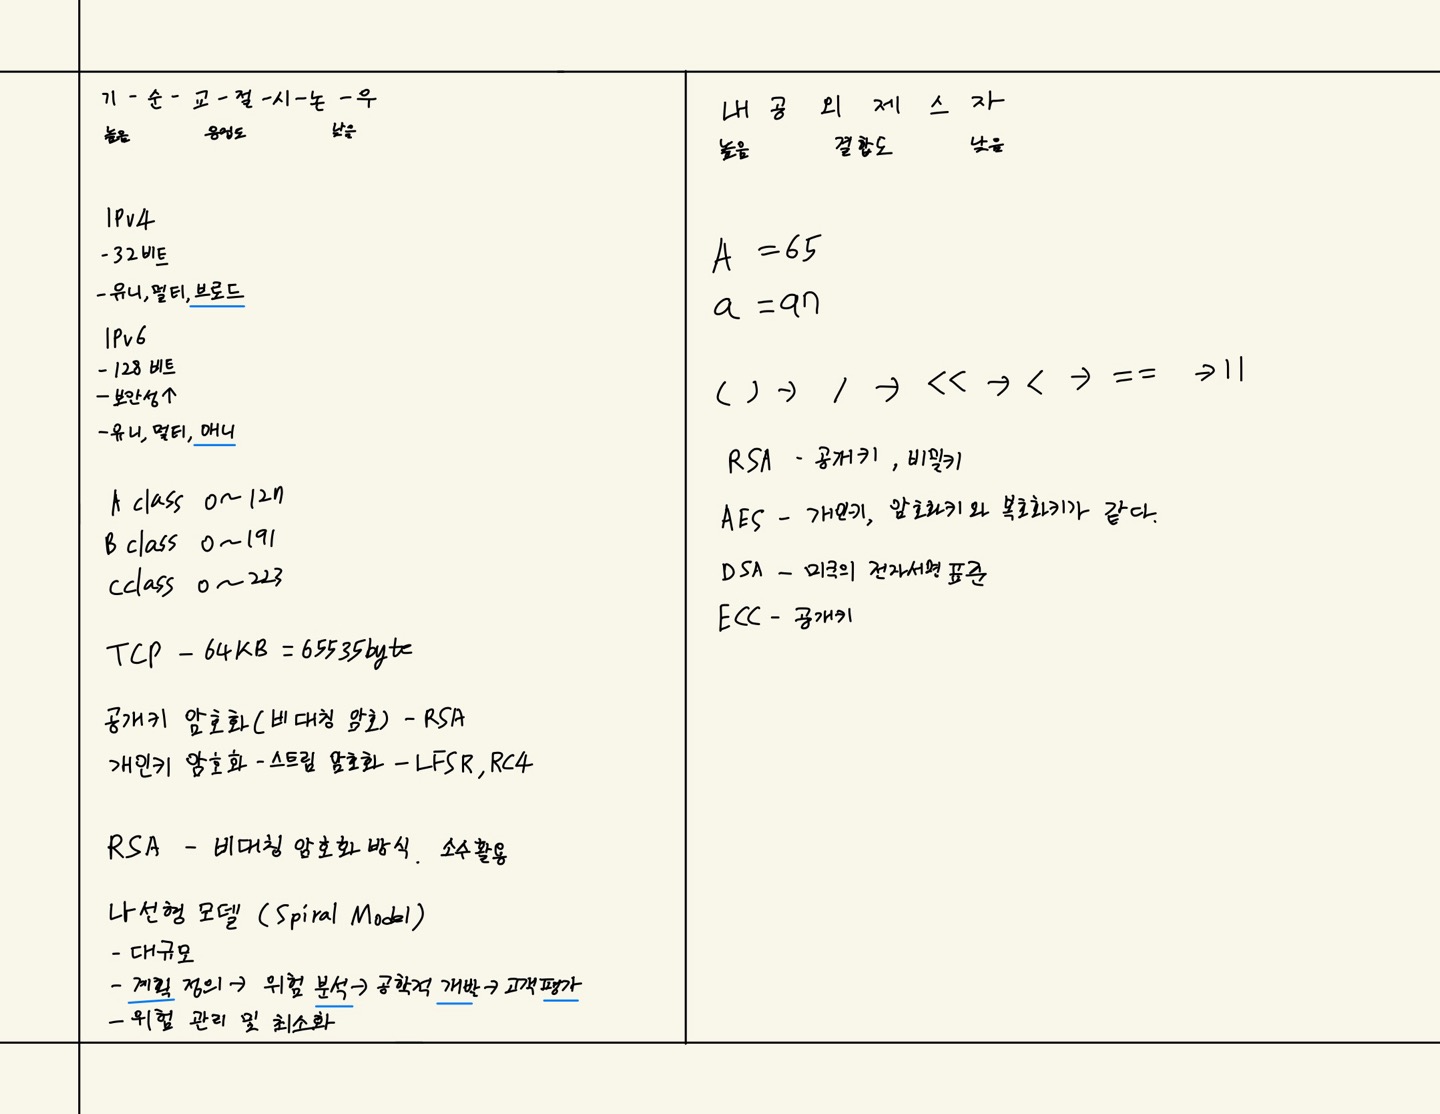 기 - 순 - 교 - 절 - 시 - 논 - 우
높음 응업도 낮음
IPv4
- 32비트
- 유니, 멀티, 브로드
IPv6
- 128 비트
- 보안성↑
- 유니, 멀티, 애니
A class 0~127
B class 0~191
C class 0~223
TCP - 64KB = 65535byte
공개키 암호화(비대칭 암호) - RSA
개인키 암호화 - 스트림 암호화 - LFSR, RC4
RSA - 비대칭 암호화 방식. 소수활용
나선형 모델 (Spiral Model)
- 대규모
- 계획 정의 → 위험 분석 → 공학적 개발 → 고객평가
- 위험 관리 및 최소화
내 공 외 제 스 자
높음 결합도 낮음
A = 65
a = 97
( ) → / → << → < → == → ||
RSA - 공개키, 비밀키
AES - 개인키, 암호화키와 복호화키가 같다.
DSA - 미국의 전자서명 표준
ECC - 공개키